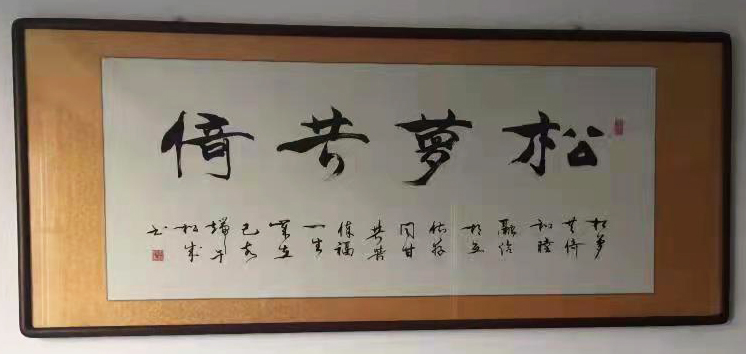 松萝共倚
松萝
共倚
和睦
融洽
相互
依存
同甘
共苦
保福
一生
己亥
端午
书